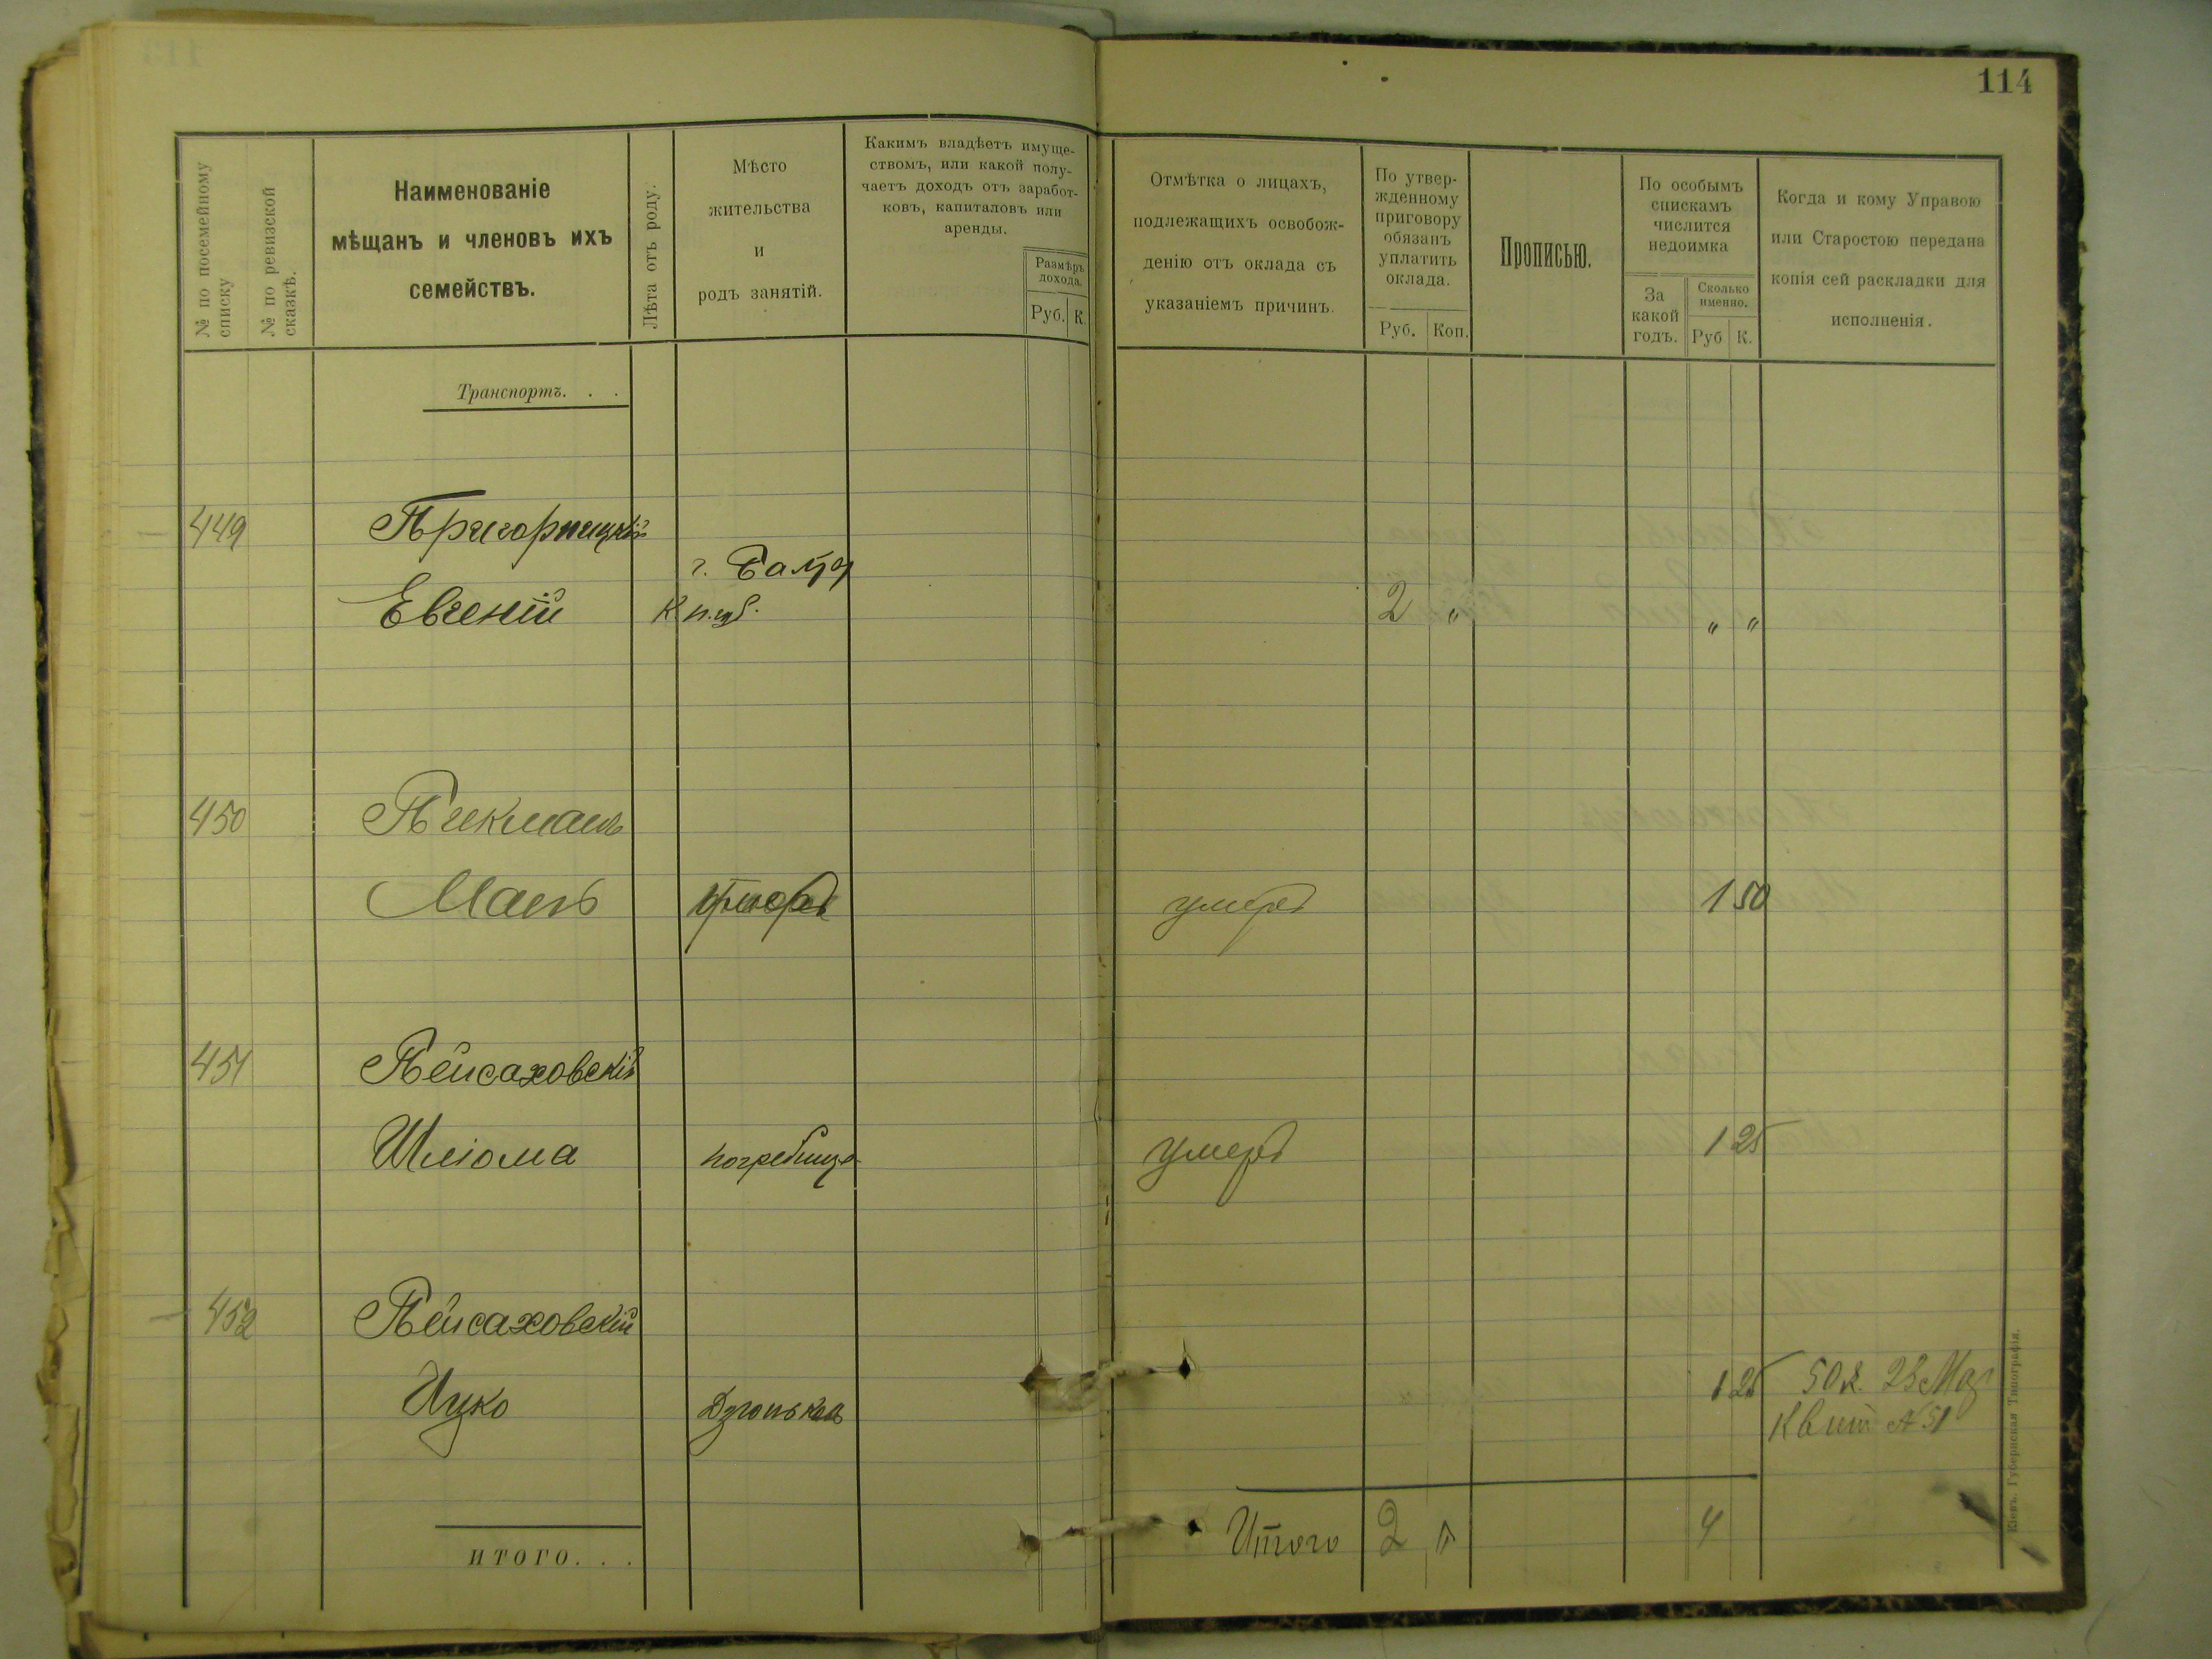 114
№ по посемейному
списку
№ по ревизской
сказкѣ.
Наименованіе
мѣщанъ и членовъ ихъ
семействъ.
Лѣта отъ роду.
Мѣсто
жительства
и
родъ занятій.
Какимъ владѣетъ имуще-
ствомъ, или какой полу-
чаетъ доходъ отъ заработ-
ковъ, капиталовъ или
аренды.
Размѣръ
дохода.
Руб. К.
Отмѣтка о лицахъ,
подлежащихъ освобож-
денію отъ оклада съ
указаніемъ причинъ.
По утвер-
жденному
приговору
обязанъ
уплатить
оклада.
Руб. Коп.
Прописью.
По особымъ
спискамъ
числится
недоимка
За
какой
годъ.
Сколько
именно.
Руб К.
Когда и кому Управою
или Старостою передана
копія сей раскладки для
исполненія.
Транспортъ. . .
449
Евгеній
г.
2 " " "
450
Манъ умеръ 1 50
451 Пейсаховскій
Шліома погребище умеръ 1 25
452 Пейсаховскій
Ицко 1 25 50 к. 23
Квит № 51
ИТОГО. . .
Итого 2 " 4
Кіевъ. Губернская Типографія.